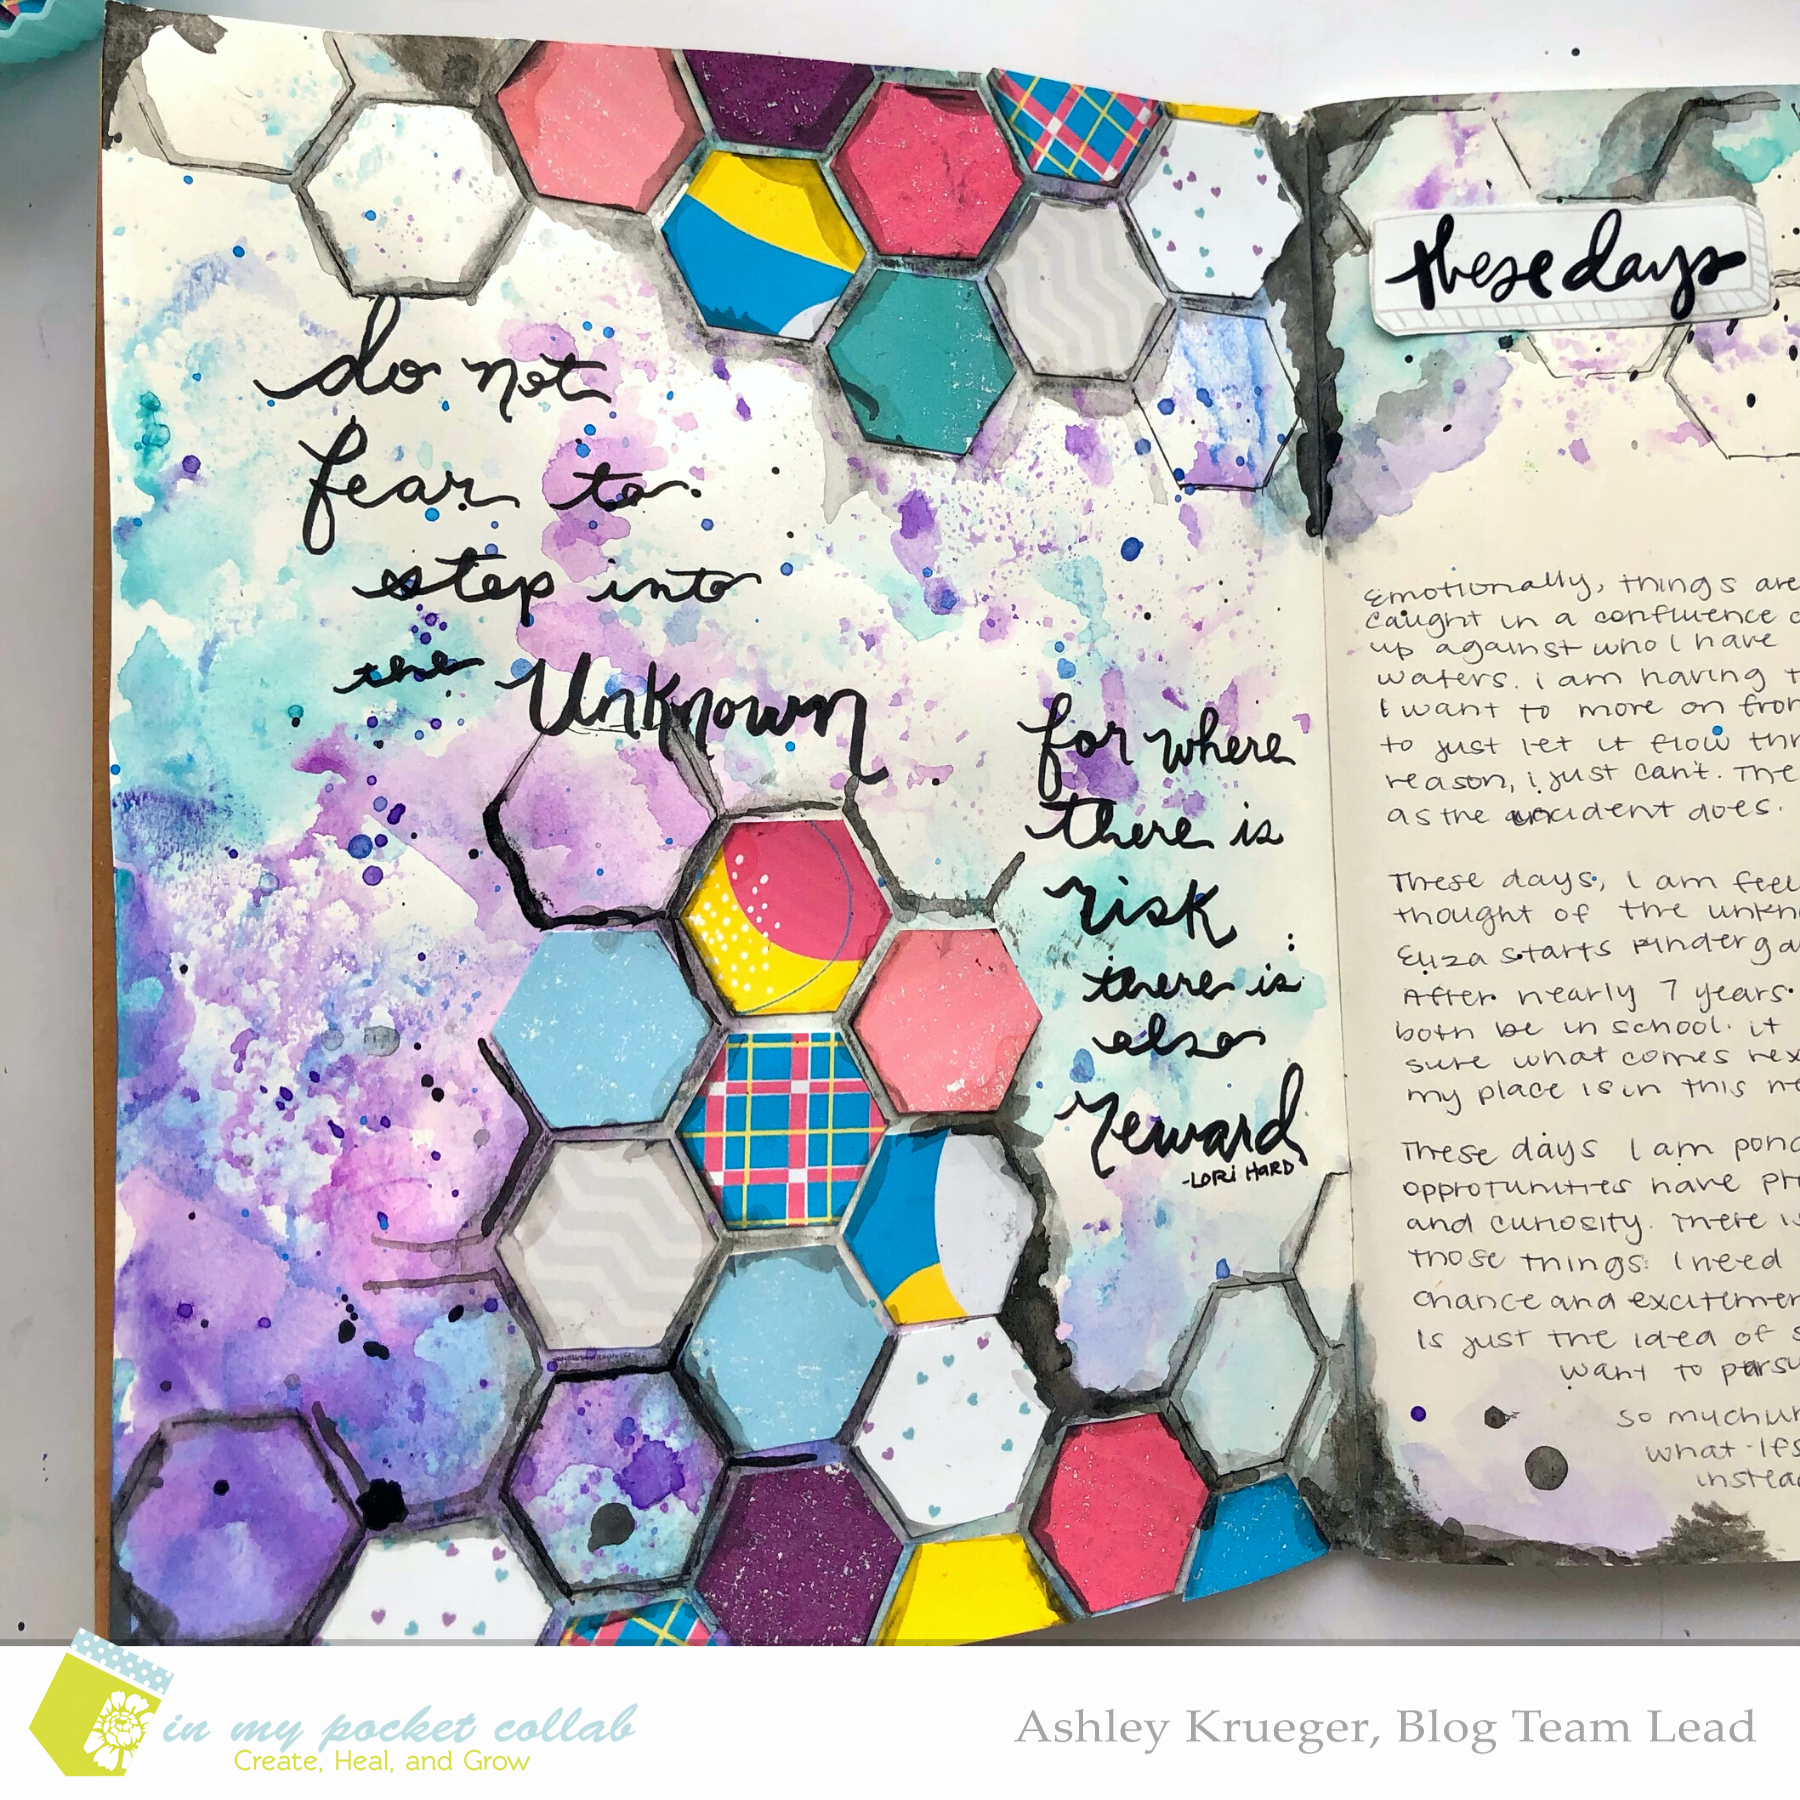 do not
fear to
step into
the Unknown
for where
there is
risk
there is
also
reward
-LORI HARD
these days
Emotionally, things are
caught in a confluence
up against who I have
waters. i am having
I want to more on from
to just let it flow
reason, i just can't. The
as the accident does.
These days, I am
thought of the
Eliza starts kinderga
After nearly 7 years
both be in school. it
sure what comes nex
my place is in this
These days I am pond
opprotunities have
and curiosity. There is
those things. I need
chance and excitemen
Is just the idea of s
want to pursu
so much
what-ifs
instea
in my pocket collab
Create, Heal, and Grow
Ashley Krueger, Blog Team Lead